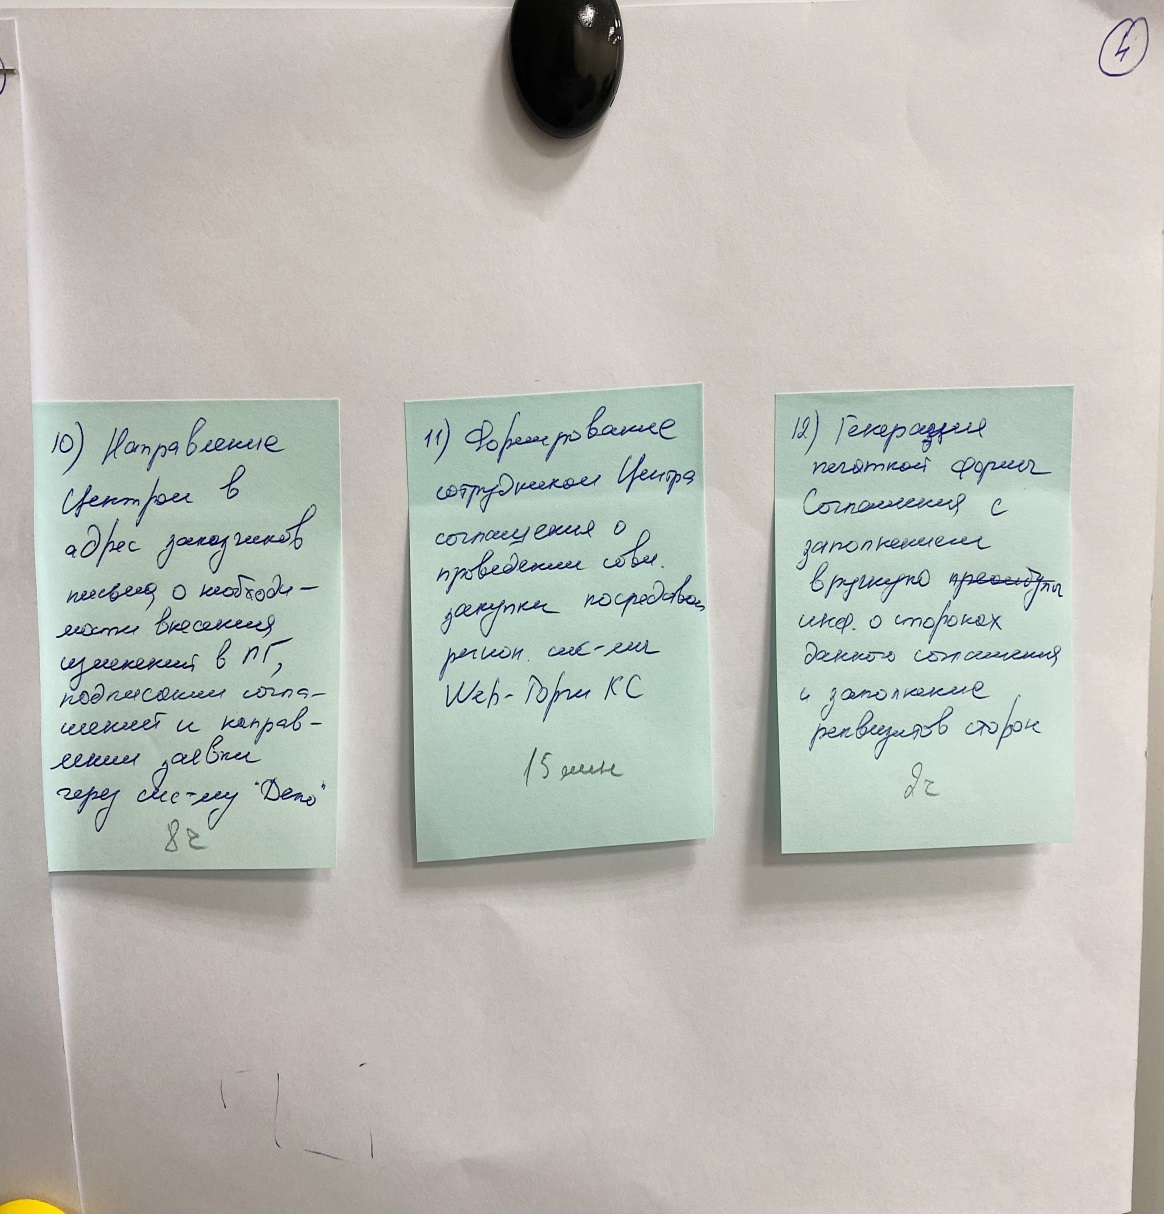 4
10) Направление
Центром в
адрес заказчиков
письма о необходи-
мости внесения
изменений в ПГ,
подписании согла-
шений и направ-
лении заявки
через сис-му "Дело"
8ч
11) Формирование
сотрудником Центра
соглашения о
проведении совм.
закупки посредством
регион. сис-мы
Web-Торги КС
15 мин
12) Генерация
печатной формы
Соглашения с
заполнением
вручную
инф. о сторонах
данного соглашения
и заполнение
реквизитов сторон
2ч